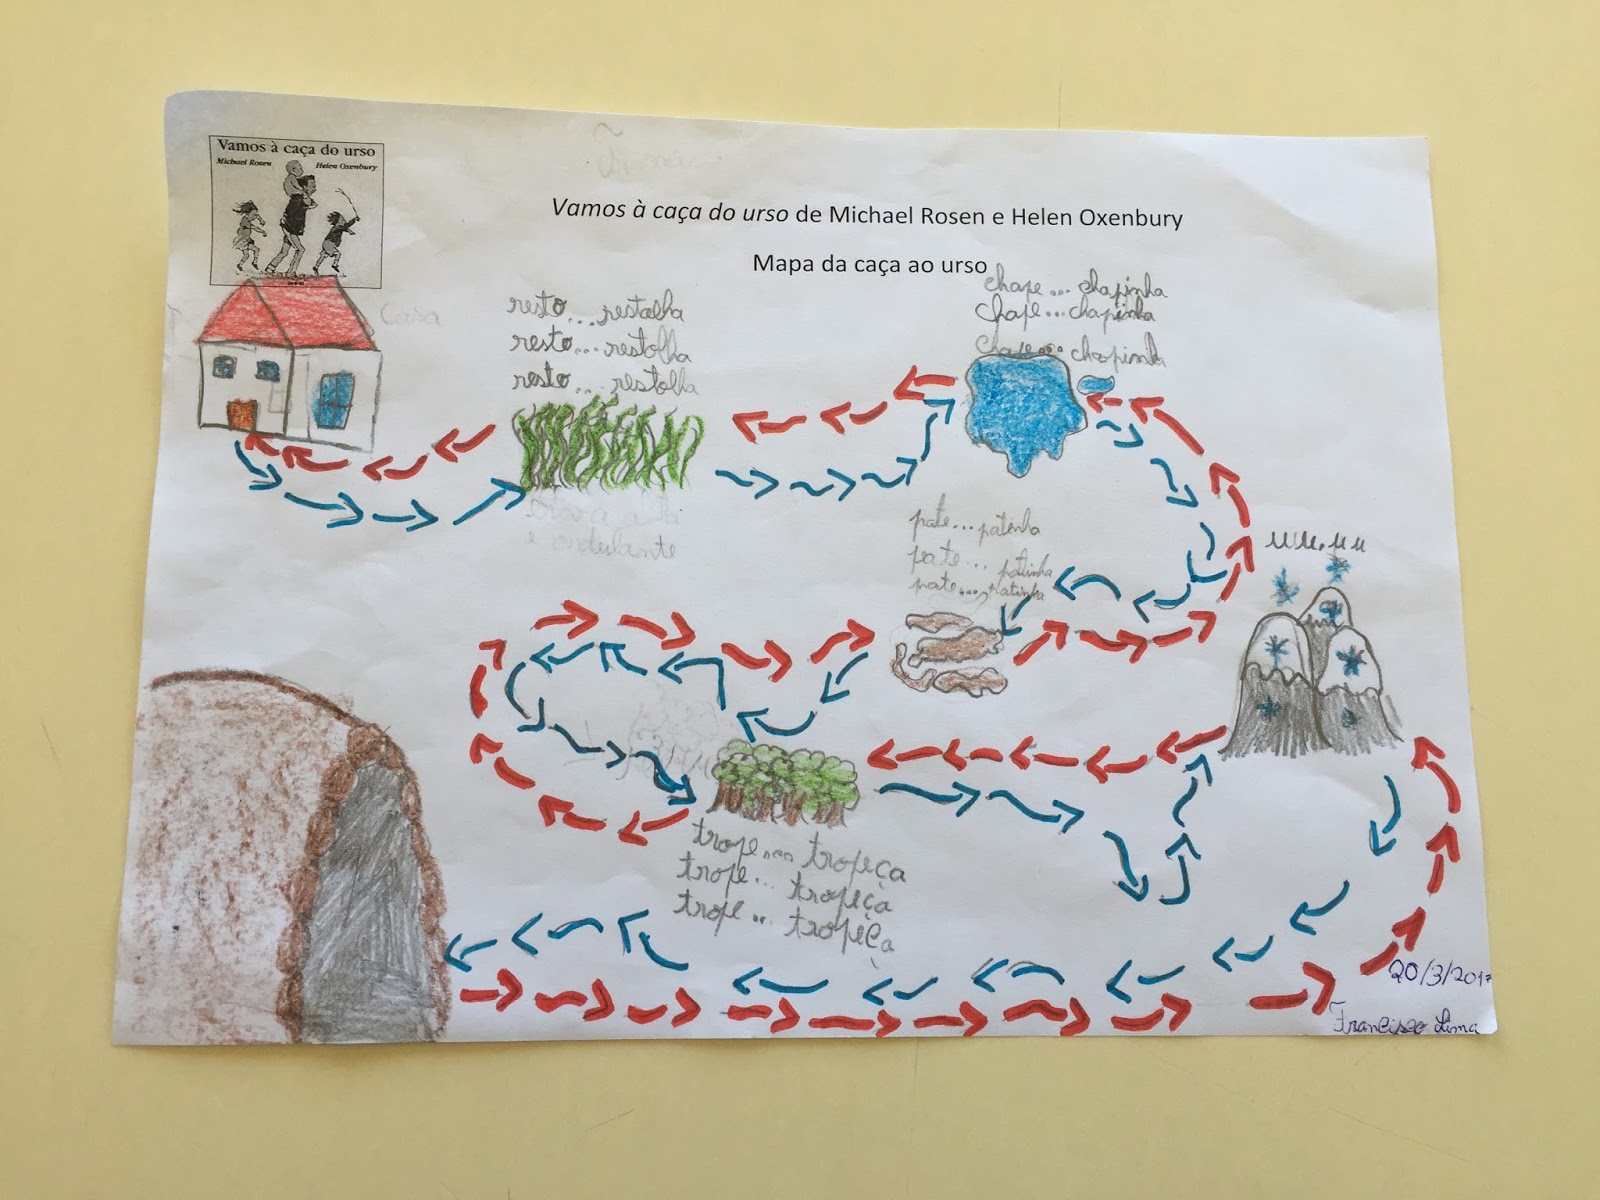 Vamos à caça do urso
Michael Rosen Helen Oxenbury
Vamos à caça do urso de Michael Rosen e Helen Oxenbury
Mapa da caça ao urso
Casa
resto...restalha
resto...restolha
resto...restolha
e ondulante
chape...chapinha
chape...chapinha
chape...chapinha
pate...patinha
pate...patinha
pate...patinha
uu.uu
trope...tropeça
trope...tropeça
trope...tropeça
20/3/2017
Francisco Lima